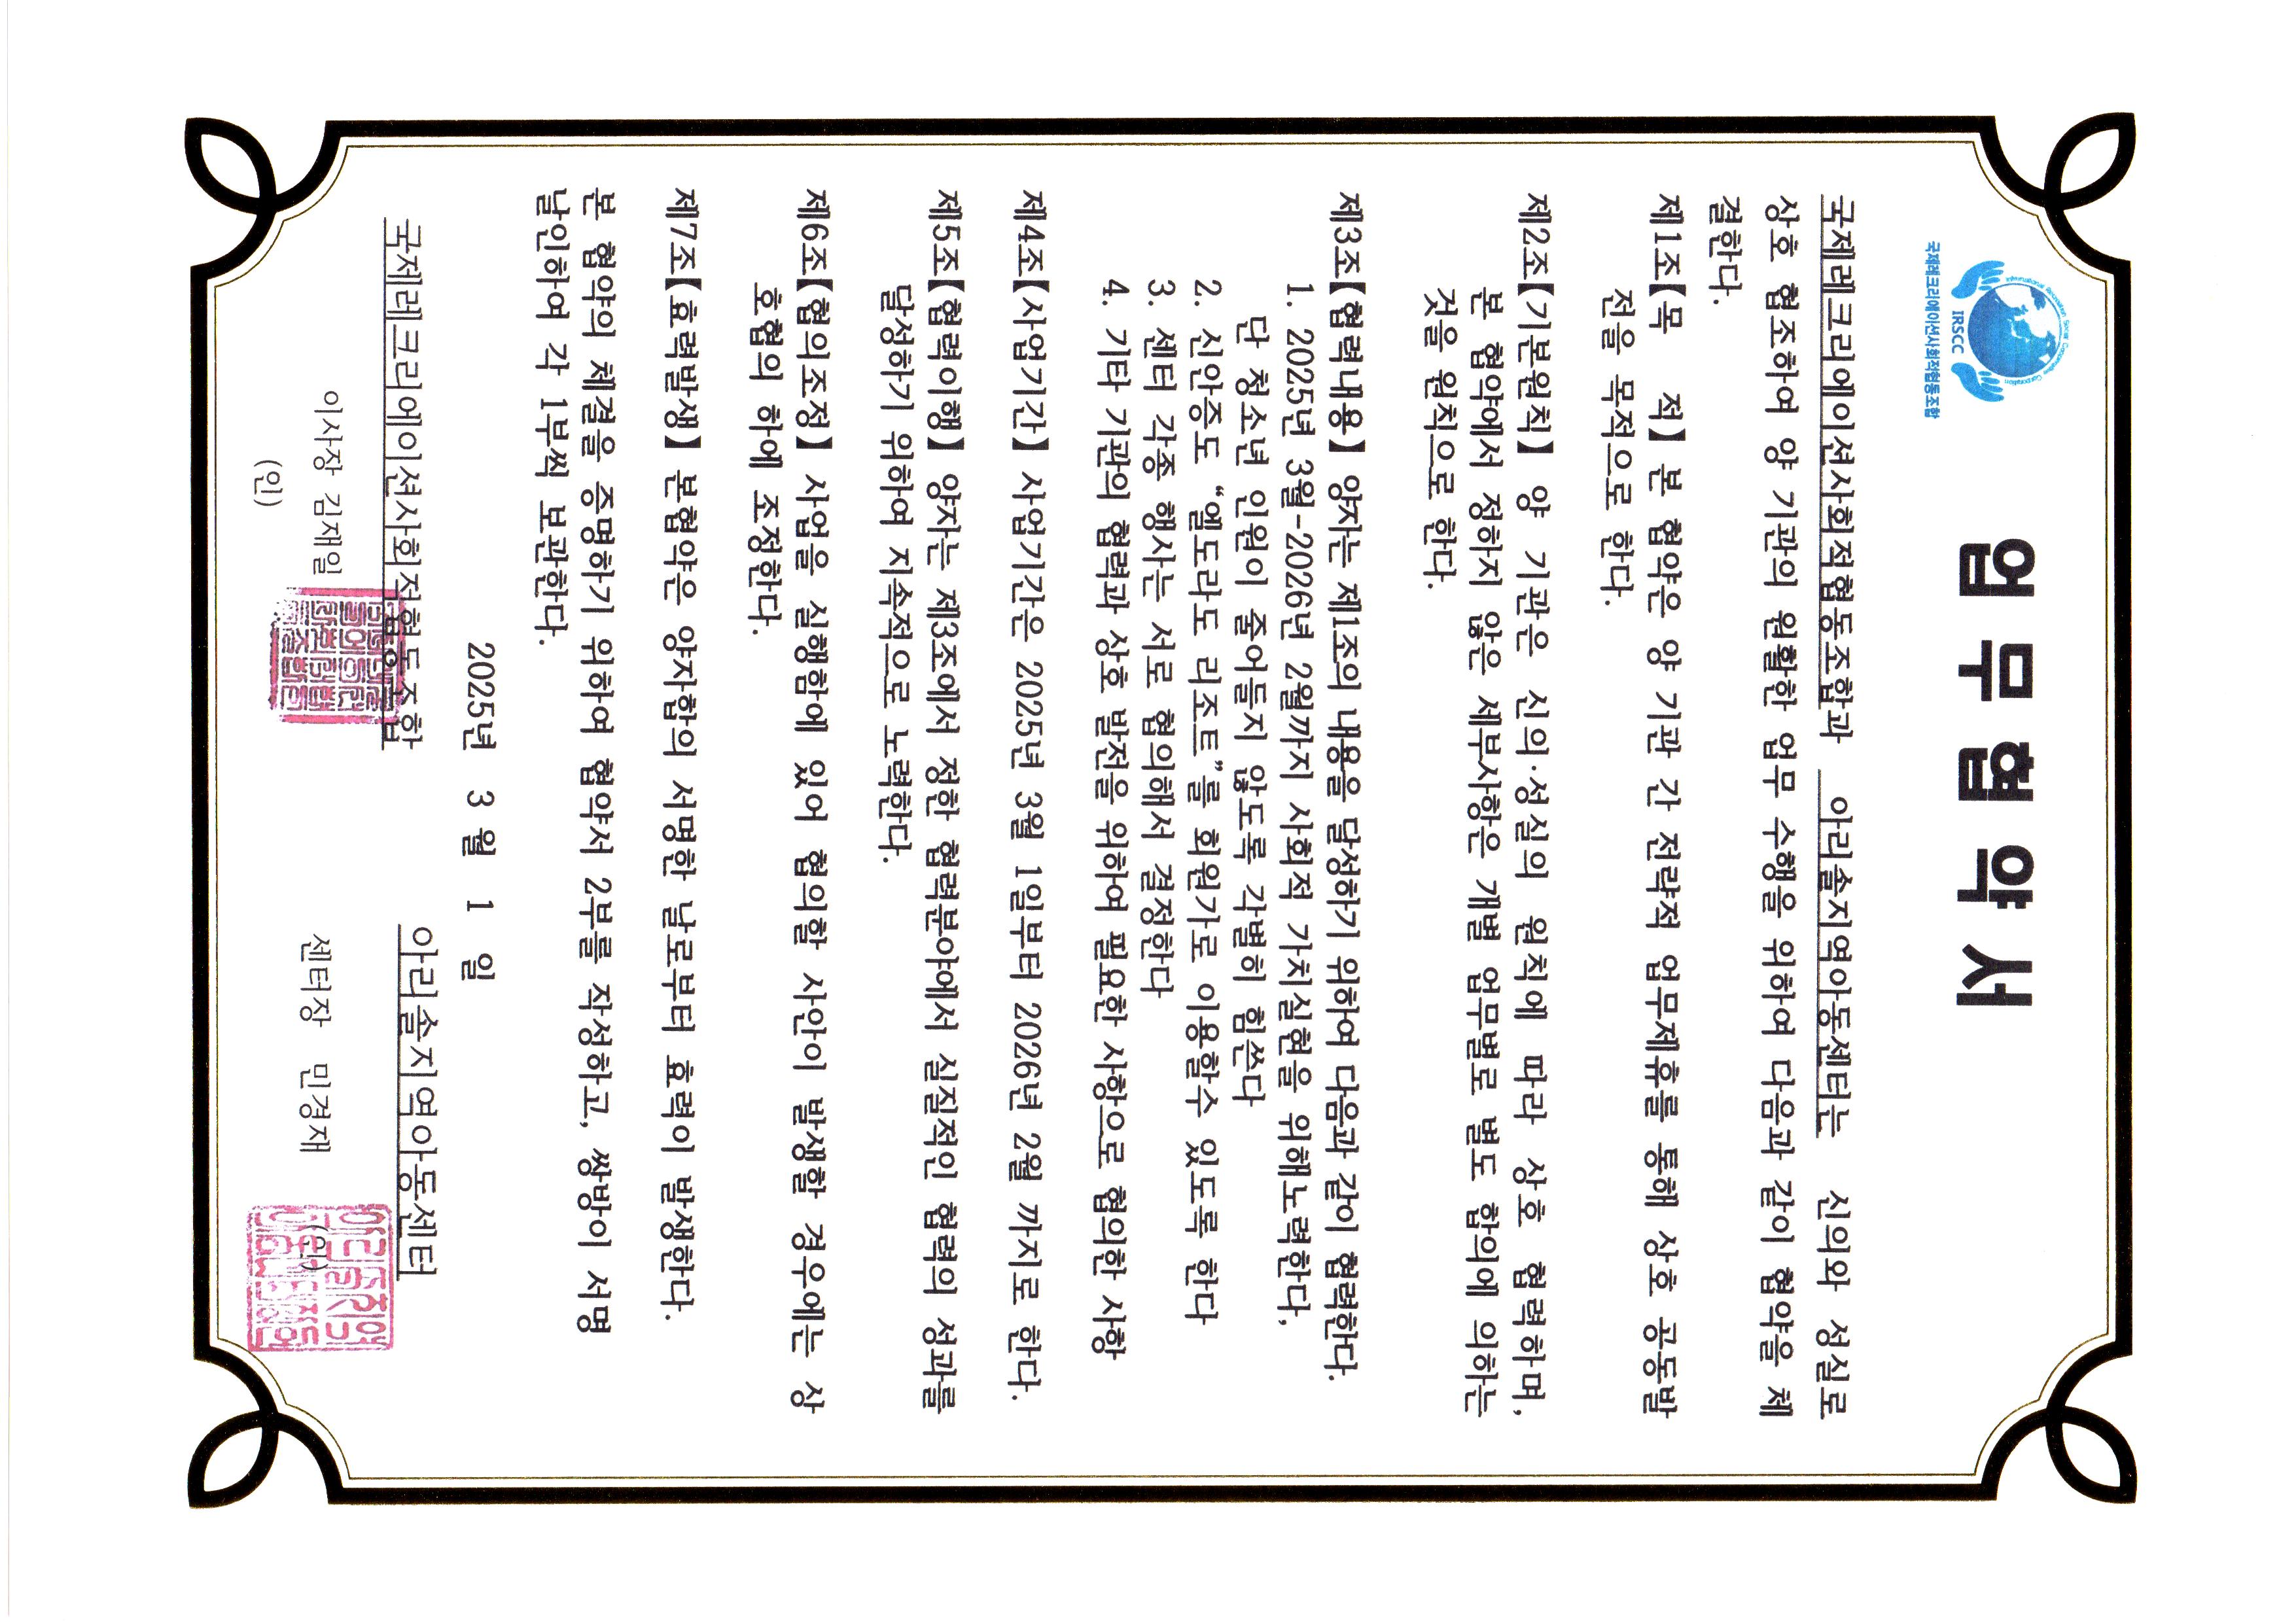 International Recreation Social Cooperative Corporation
IRSCC
국제레크리에이션사회적협동조합
업무협약서
국제레크리에이션사회적협동조합과 아리솔지역아동센터는 신의와 성실로
상호 협조하여 양 기관의 원활한 업무 수행을 위하여 다음과 같이 협약을 체
결한다.
제1조【목 적】 본 협약은 양 기관 간 전략적 업무제휴를 통해 상호 공동발
전을 목적으로 한다.
제2조【기본원칙】 양 기관은 신의·성실의 원칙에 따라 상호 협력하며,
본 협약에서 정하지 않은 세부사항은 개별 업무별로 별도 합의에 의하는
것을 원칙으로 한다.
제3조【협력내용】 양자는 제1조의 내용을 달성하기 위하여 다음과 같이 협력한다.
1. 2025년 3월-2026년 2월까지 사회적 가치실현을 위해노력한다,
단 청소년 인원이 줄어들지 않도록 각별히 힘쓴다
2. 신안증도 “엘도라도 리조트”를 회원가로 이용할수 있도록 한다
3. 센터 각종 행사는 서로 협의해서 결정한다
4. 기타 기관의 협력과 상호 발전을 위하여 필요한 사항으로 협의한 사항
제4조【사업기간】 사업기간은 2025년 3월 1일부터 2026년 2월 까지로 한다.
제5조【협력이행】 양자는 제3조에서 정한 협력분야에서 실질적인 협력의 성과를
달성하기 위하여 지속적으로 노력한다.
제6조【협의조정】 사업을 실행함에 있어 협의할 사안이 발생할 경우에는 상
호협의 하에 조정한다.
제7조【효력발생】 본협약은 양자합의 서명한 날로부터 효력이 발생한다.
본 협약의 체결을 증명하기 위하여 협약서 2부를 작성하고, 쌍방이 서명
날인하여 각 1부씩 보관한다.
2025년 3 월 1 일
국제레크리에이션사회적협동조합 아리솔지역아동센터
이사장 김재일 센터장 민경재 (인)
(인)